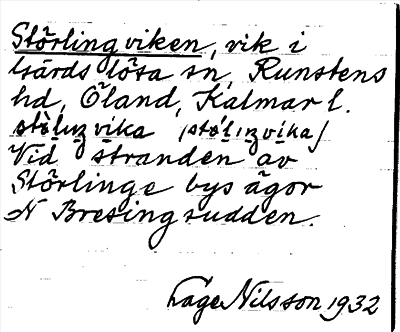 Störlingviken, vik i
Gärdslösa sn, Runstens
hd, Öland, Kalmar l.
Vid stranden av
Störlinge bys ägor
N Bresingsudden.
Lage Nilsson 1932